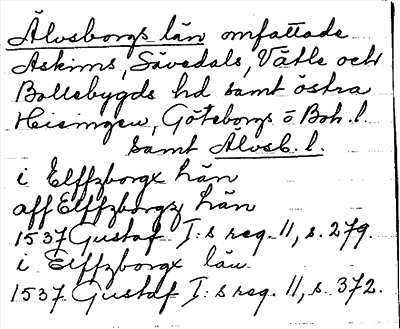 Älvsborgs län omfattade
Askims, Sävedals, Vättle och
Bollebygds hd samt östra
Hisingen, Göteborgs o Boh. l.
samt Älvsb. l.
i Elffzborgx hän
aff Elffzborgz hän
1537 Gustaf I:s reg. 11, s. 279.
i Elffzborgx län
1537 Gustaf I:s reg. 11, s. 372.